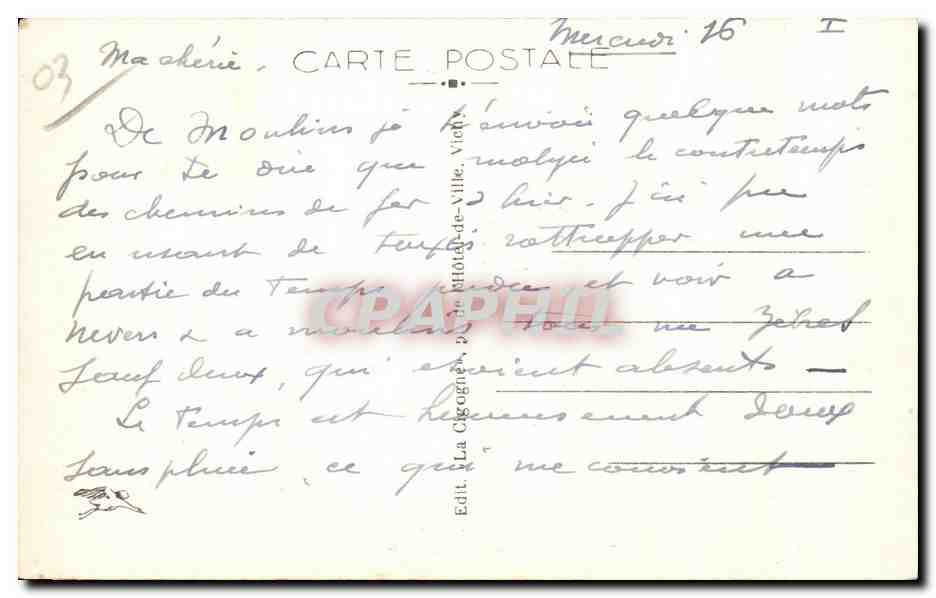 Mercredi 16 I
03
Ma chérie, CARTE POSTALE
De Moulins je t'envoie quelque mots
pour te dire que malgré le contretemps
des chemins de fer d'hier. J'ai pu
en usant de taxis rattrapper une
partie du temps perdu et voir a
Nevers & a Moulins tous me Zèbres
sauf deux, qui etaient absents —
Le temps est heureusement doux
sans pluie, ce qui me convient —
Edit. La Cigogne, de l'Hôtel-de-Ville, Vichy
CPAPHIL